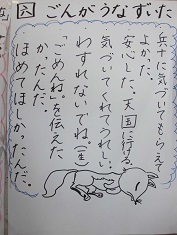 囚 ごんがうなずいた
兵十に気づいてもらえて
よかった。
安心した。天国に行ける。
気づいてくれてうれしい。
わすれないでね。(生)
「ごめんね」を伝えた
かったんだ。
ほめてほしかったんだ。